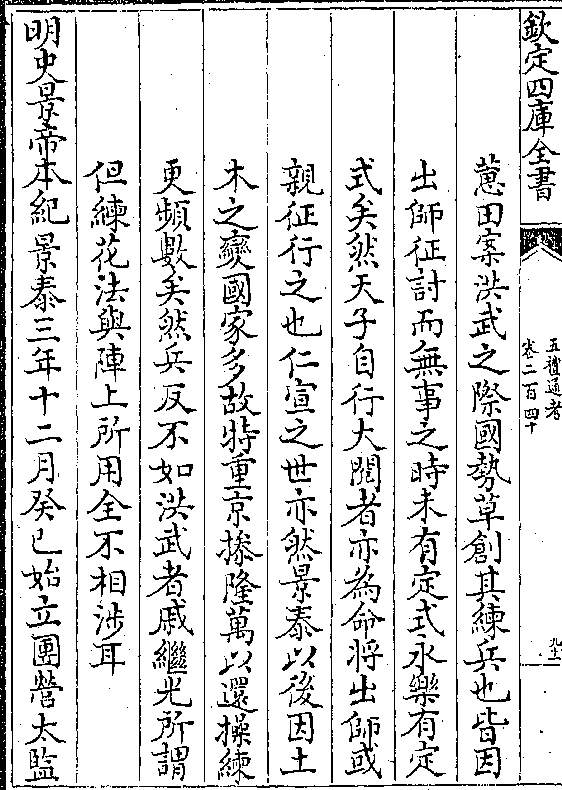 欽定四庫全書
五禮通考
卷二百四十
九十一
蕙田案洪武之際國勢草創其練兵也皆因
出師征討而無事之時未有定式永樂有定
式矣然天子自行大閱者亦為命將出師或
親征行之也仁宣之世亦然景泰以後因土
木之變國家多故特重京操隆萬以還操練
更頻數矣然兵反不如洪武者戚繼光所謂
但練花法與陣上所用全不相涉耳
明史景帝本紀景泰三年十二月癸巳始立團營太監